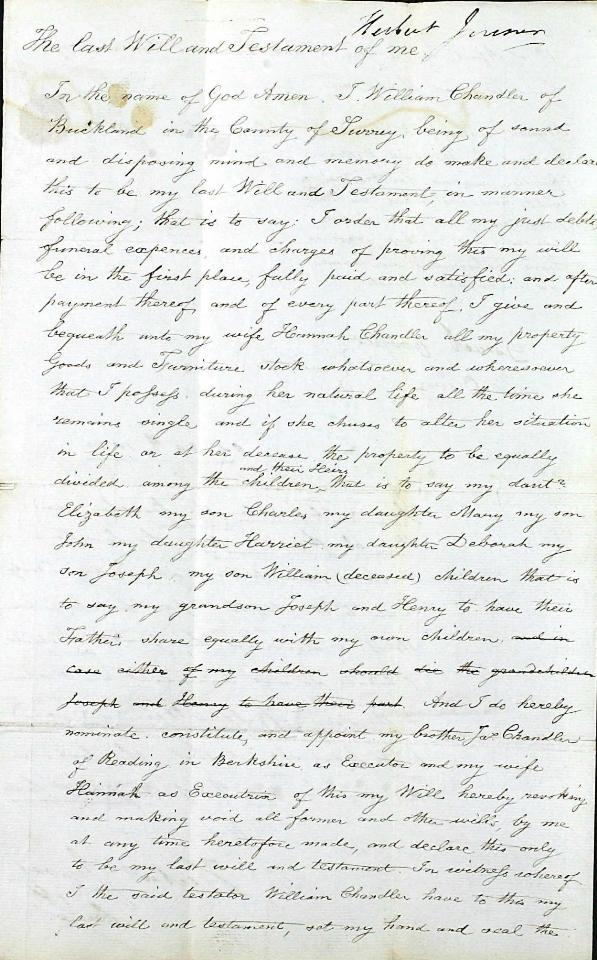 Herbert Jenner
The last Will and Testament of me
In the name of God Amen. I. William Chandler of
Buckland in the County of Surrey, being of sound
and disposing mind and memory do make and declare
this to be my last Will and Testament, in manner
following; that is to say: I order that all my just debts
funeral expences, and charges of proving this my will
be in the first place, fully paid and satisfied; and after
payment thereof, and of every part thereof, I give and
bequeath unto my wife Hannah Chandler all my property
Goods and Furniture stock whatsoever and wheresoever
that I possess during her natural life all the time she
remains single and if she chuses to alter her situation
in life or at her decease the property to be equally
and their Heirs
divided among the children, that is to say my
Elizabeth my son Charles my daughter Mary my son
John my daughter Harriet my daughter Deborah my
son Joseph, my son William (deceased) children that is
to say my grandson Joseph and Henry to have their
Father's share equally with my own children. and in
case either of my children should die the grandchildren
Joseph and Henry to have their part. And I do hereby
nominate. constitute, and appoint my brother Jas. Chandler
of Reading in Berkshire as Executor and my wife
Hannah as Executrix of this my Will hereby revoking
and making void all former and other wills, by me
at any time heretofore made, and declare this only
to be my last will and testament. In witness whereof
I the said testator William Chandler have to this my
last will and testament, set my hand and seal the